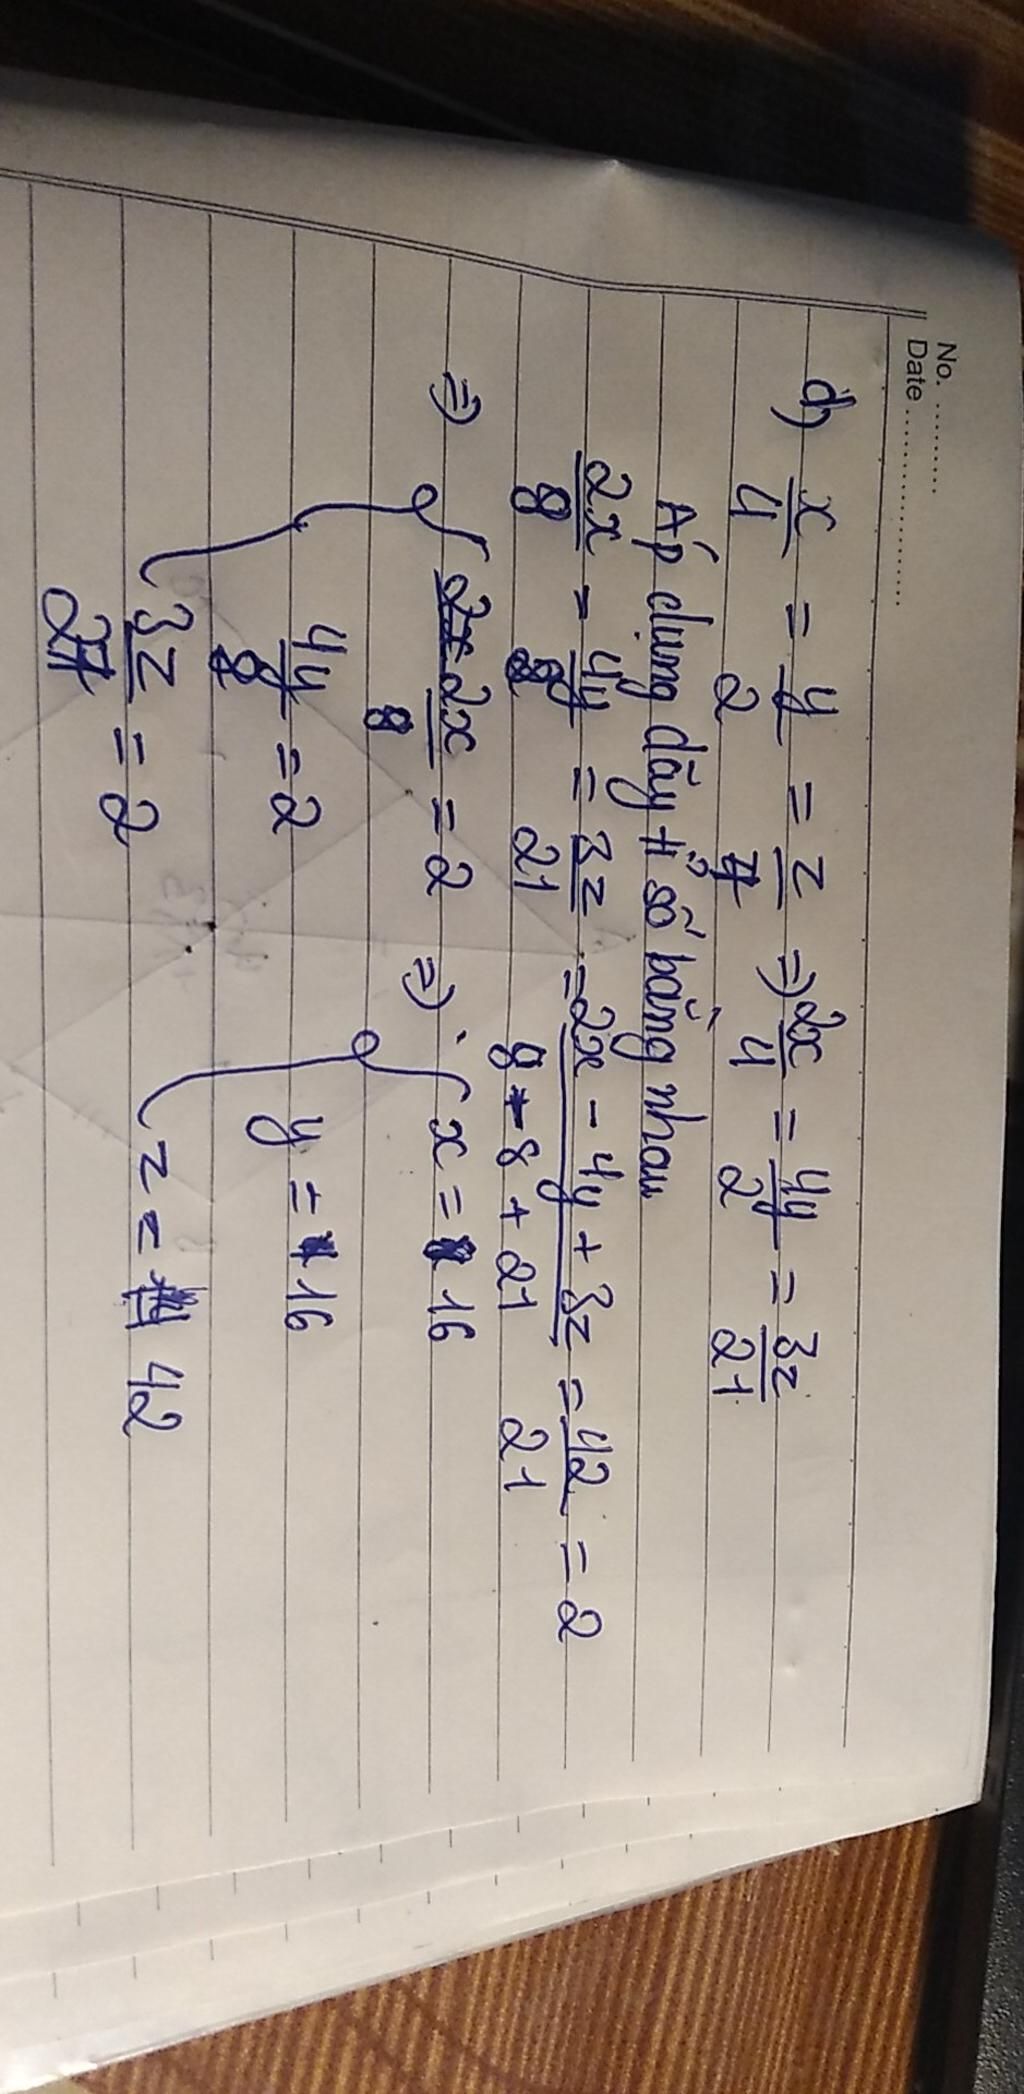 No. ........
Date ................
d) x/4 = y/2 = z/7 => 2x/4 = 4y/2 = 3z/21
Áp dụng dãy tỉ số bằng nhau
2x/8 = 4y/8 = 3z/21 = 2x - 4y + 3z/8 - 8 + 21 = 42/21 = 2
=> { 2x/8 = 2 => { x = 16
4y/8 = 2 y = 16
3z/21 = 2 z = 42